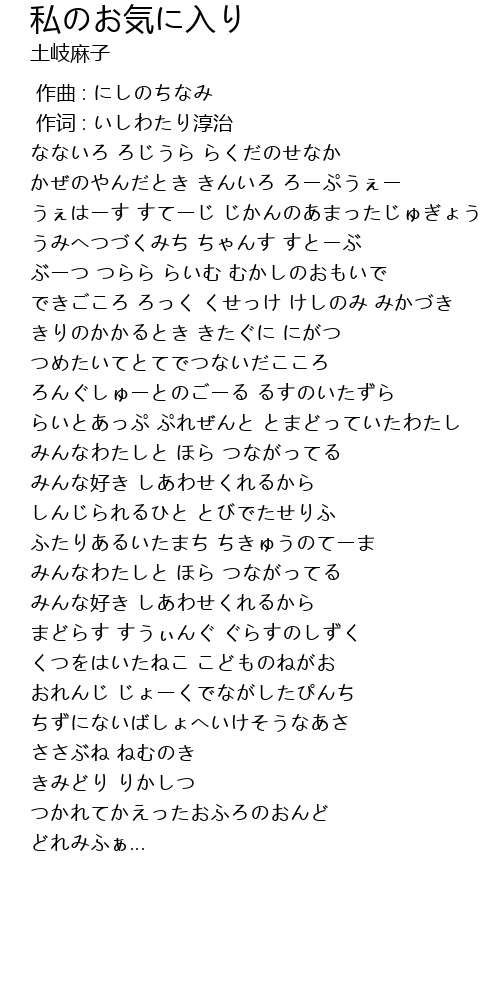 私のお気に入り
土岐麻子
作曲 : にしのちなみ
作词 : いしわたり淳治
なないろ ろじうら らくだのせなか
かぜのやんだとき きんいろ ろーぷうぇー
うぇはーす すてーじ じかんのあまったじゅぎょう
うみへつづくみち ちゃんす すとーぶ
ぶーつ つらら らいむ むかしのおもいで
できごころ ろっく くせっけ けしのみ みかづき
きりのかかるとき きたぐに にがつ
つめたいてとてでつないだこころ
ろんぐしゅーとのごーる るすのいたずら
らいとあっぷ ぷれぜんと とまどっていたわたし
みんなわたしと ほら つながってる
みんな好き しあわせくれるから
しんじられるひと とびでたせりふ
ふたりあるいたまち ちきゅうのてーま
みんなわたしと ほら つながってる
みんな好き しあわせくれるから
まどらす すうぃんぐ ぐらすのしずく
くつをはいたねこ こどものねがお
おれんじ じょーくでながしたぴんち
ちずにないばしょへいけそうなあさ
ささぶね ねむのき
きみどり りかしつ
つかれてかえったおふろのおんど
どれみふぁ...